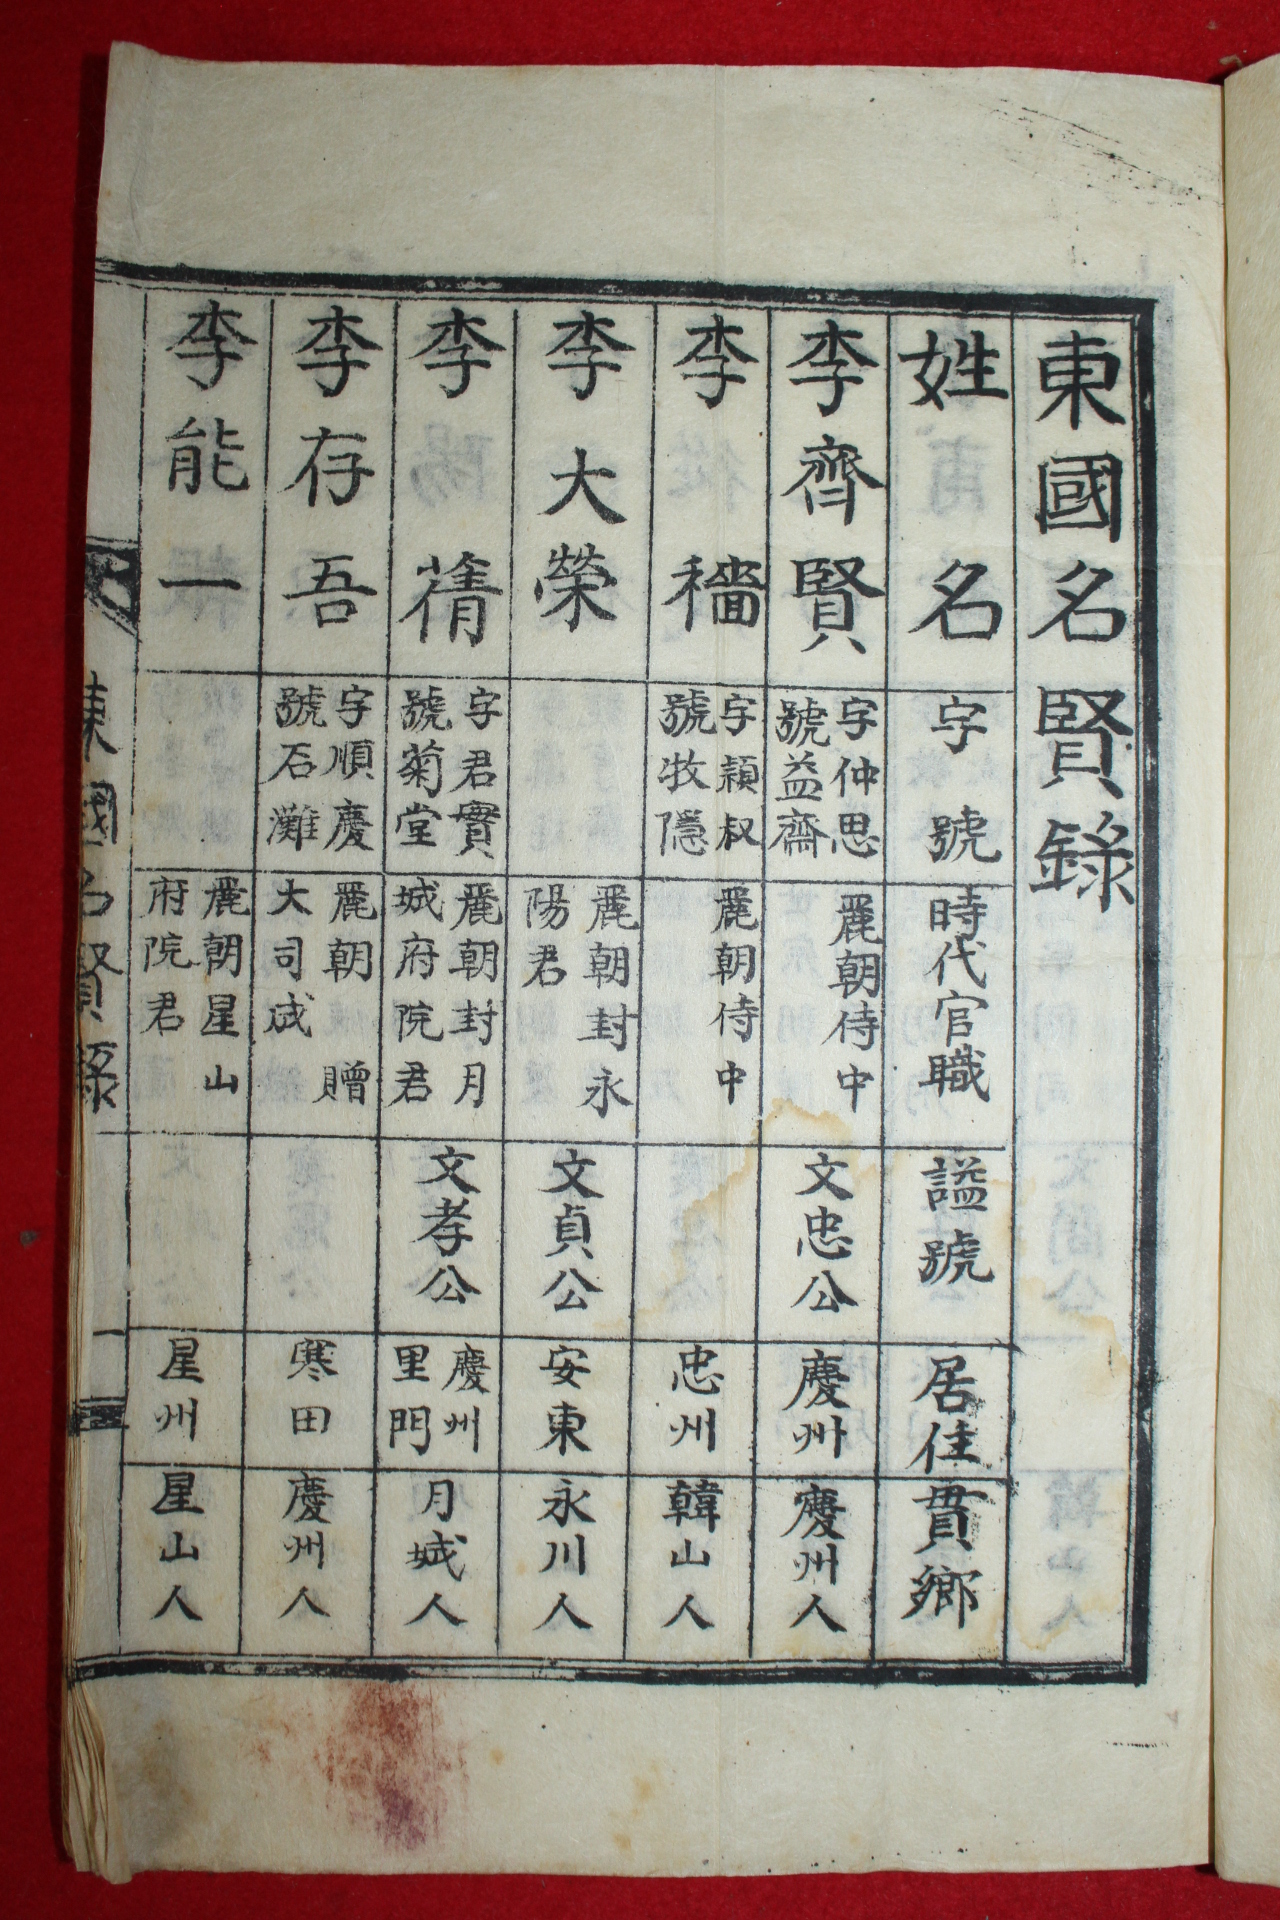 東國名賢錄
姓名
字號
時代官職
謚號
居住
貫鄉
李齊賢
字仲思
號益齋
麗朝侍中
文忠公
慶州
慶州人
李穡
字穎叔
號牧隱
麗朝侍中
忠州
韓山人
李大榮
麗朝封永
陽君
文貞公
安東
永川人
李蒨
字君實
號菊堂
麗朝封月
城府院君
文孝公
慶州
里門
月城人
李存吾
字順慶
號石灘
麗朝 贈
大司成
寒田
慶州人
李能一
麗朝星山
府院君
星州
星山人
東國名賢錄
一